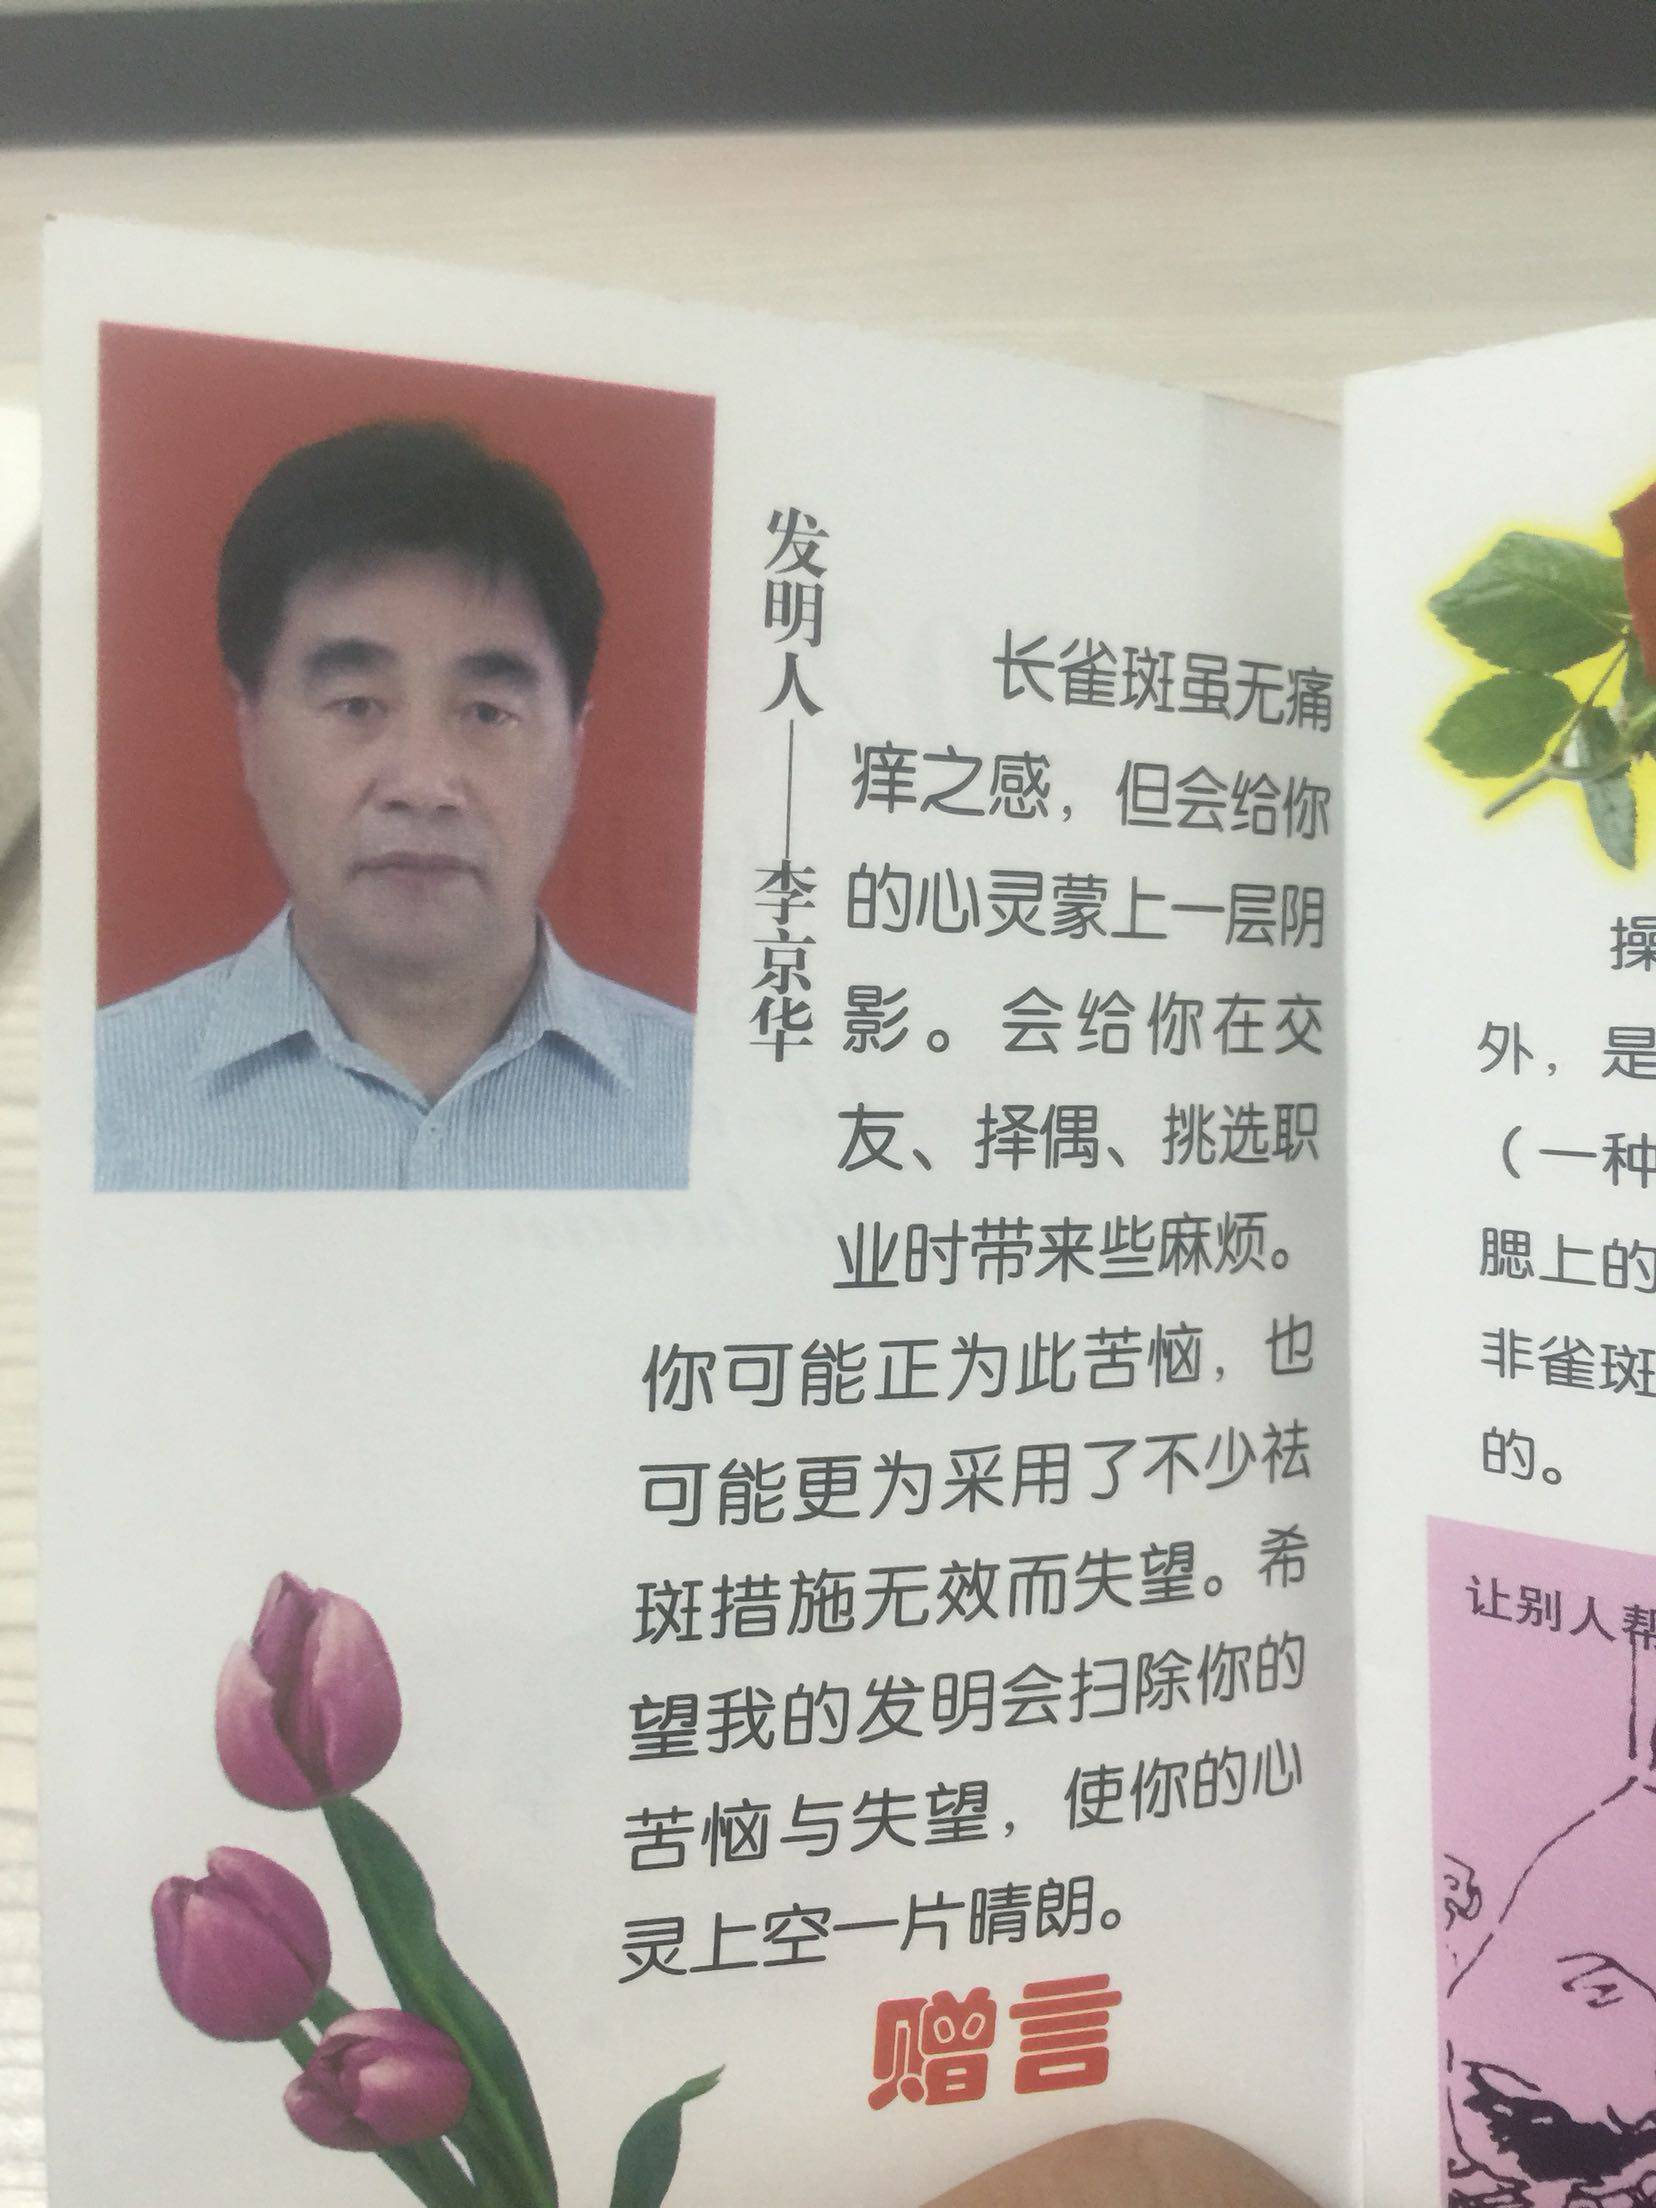 发明人——李京华
长雀斑虽无痛
痒之感，但会给你
的心灵蒙上一层阴
影。会给你在交
友、择偶、挑选职
业时带来些麻烦。
你可能正为此苦恼，也
可能更为采用了不少祛
斑措施无效而失望。希
望我的发明会扫除你的
苦恼与失望，使你的心
灵上空一片晴朗。
赠言
操
外，是
（一种
腮上的
非雀斑
的。
让别人帮